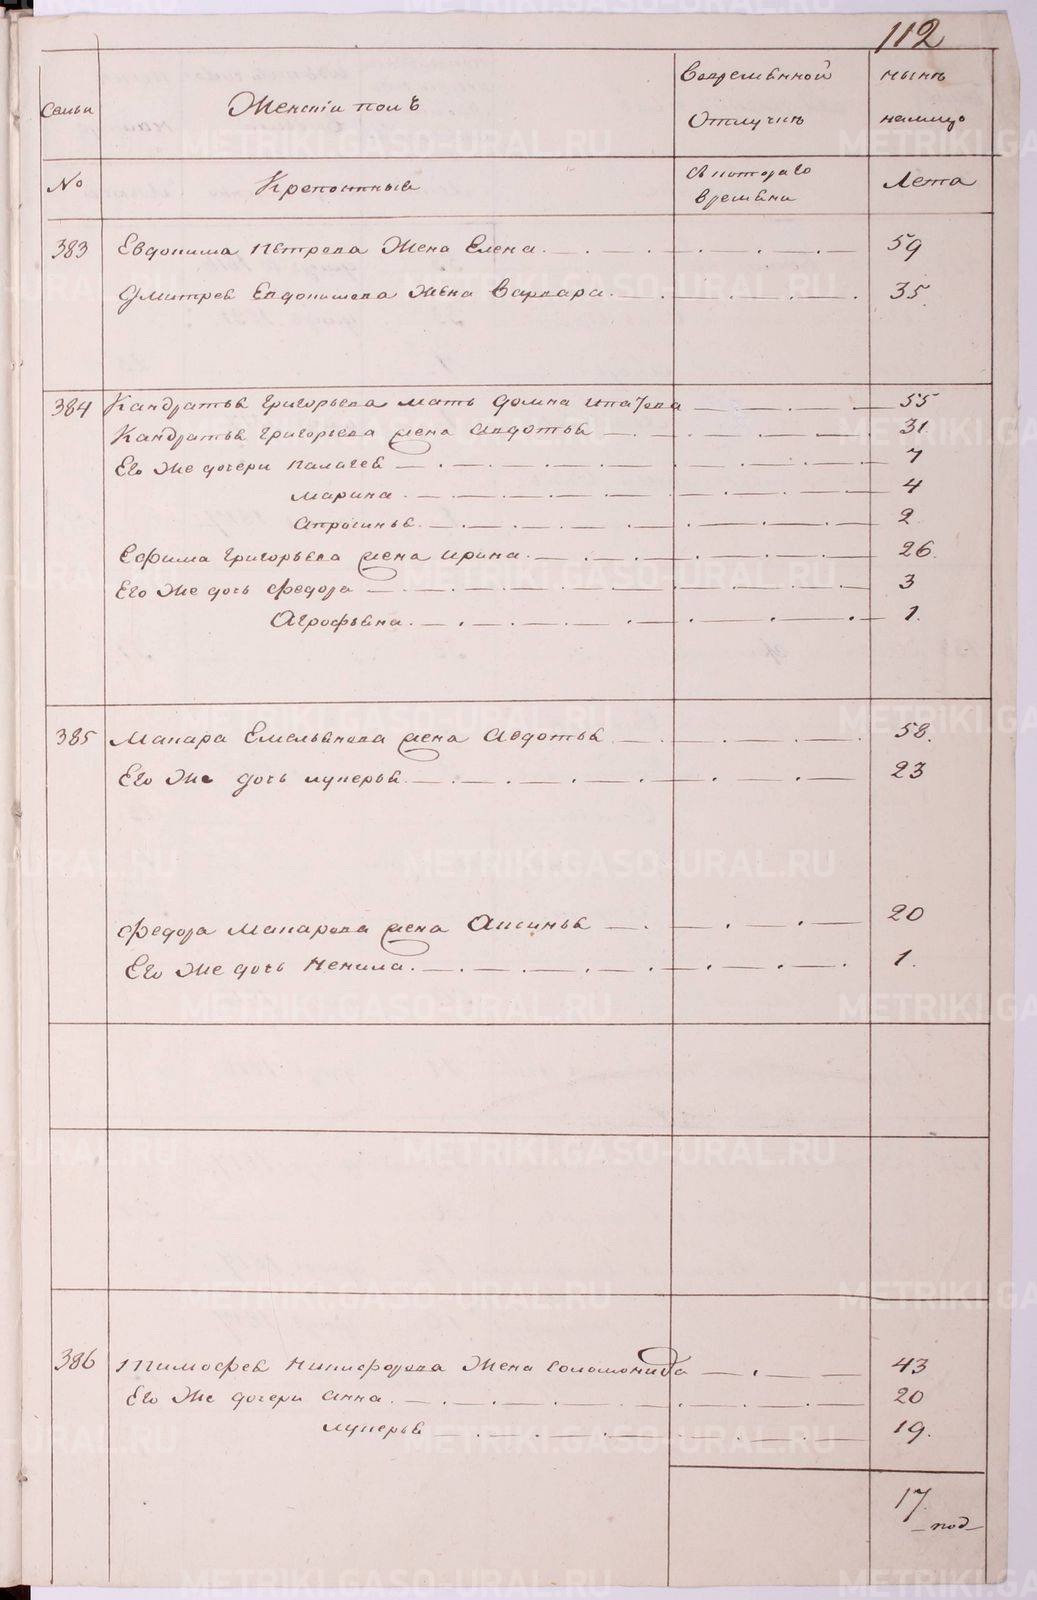 112
Семьи Женскiй полъ Вовременной ныне
Отлучке налицо
№ Крепостные Скотораго Лета
Времени
383 Евдокима Петрова Жена Елена 59
Дмитрея Евдокимова Жена Варвара 35
384 Кандратья Григорьева мать Домна Ипатова 55
Кандратья Григорьева жена Авдотья 31
Его Же дочери Палагея 7
Марина 4
Апросинья 2
Ефима Григорьева жена Ирина 26
Его Же дочь Федора 3
Агрофьена 1.
385 Макара Емельянова жена Авдотья 58.
Его Же дочь Лукерья 23
Федора Макарова жена Аксинья 20
Его Же дочь Ненила 1.
386 Тимофея Никифорова Жена Соломонида 43
Его Же дочери Анна 20
Лукерья 19.
17.
под
METRIKI.GASO-URAL.RU